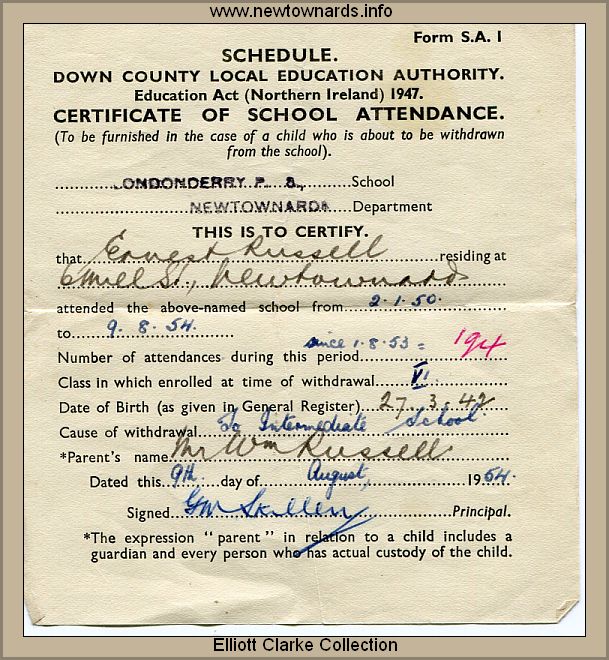 www.newtownards.info
Form S.A. 1
SCHEDULE.
DOWN COUNTY LOCAL EDUCATION AUTHORITY.
Education Act (Northern Ireland) 1947.
CERTIFICATE OF SCHOOL ATTENDANCE.
(To be furnished in the case of a child who is about to be withdrawn
from the school).
LONDONDERRY P. S., School
NEWTOWNARDS Department
THIS IS TO CERTIFY.
that Ernest Russell residing at
St., Newtownards
attended the above-named school from 2.1.50.
to 9.8.54.
since 1.8.53 = 194
Number of attendances during this period
Class in which enrolled at time of withdrawal VI.
Date of Birth (as given in General Register) 27.3.42
Cause of withdrawal To Intermediate School
*Parent's name Mr Wm Russell
Dated this 9th. day of August, 1954.
Signed GW Skillen Principal.
*The expression "parent" in relation to a child includes a
guardian and every person who has actual custody of the child.
Elliott Clarke Collection